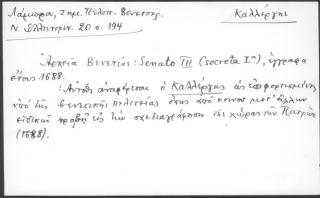 Λάμπρου, Σημ. Πελοπ. Βενετοκρ.
Ν. Ελληνομν. 20 σ. 194
Καλλέργης
Αρχεία Βενετίας: Senato III (secreta Iª), έγγραφα
έτους 1688.
Αυτόθι αναφέρεται ο Καλλέργης ως επιφορτισμένος
υπό της βενετικής πολιτείας όπως από κοινού μετ' άλλων
ειδικών προβή εις την σχεδιαγράφησιν της χώρας των Πατρών
(1688).